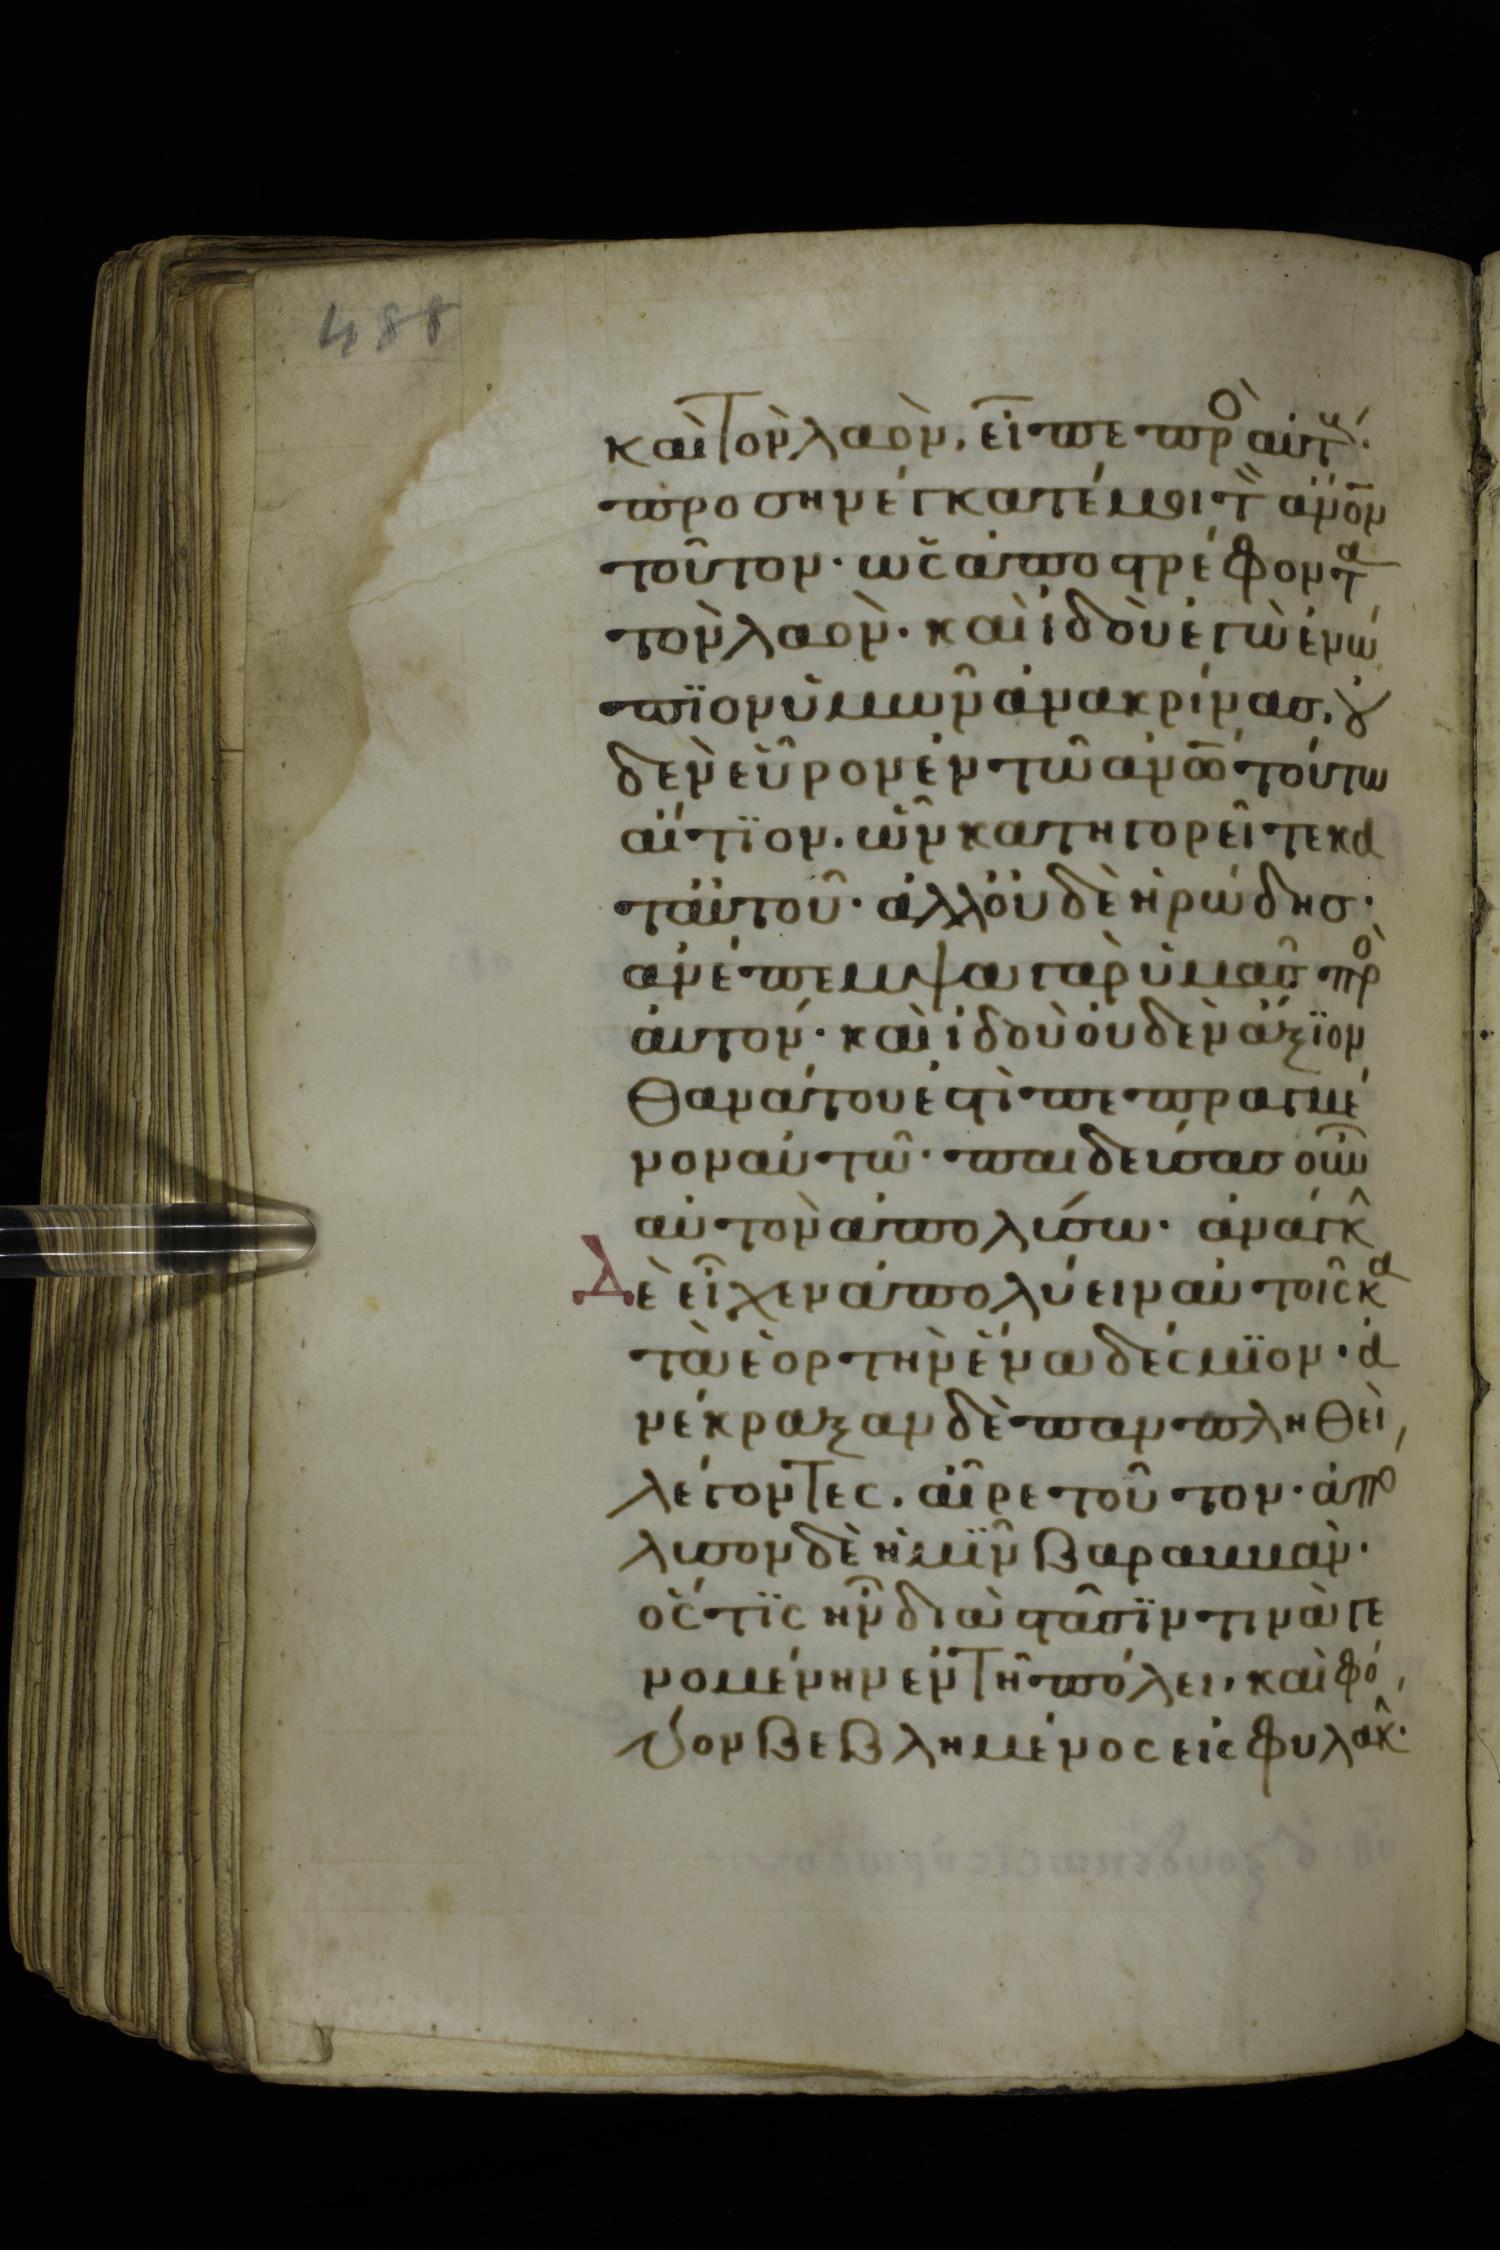 488
καὶ τὸν λαὸν, εἶπε πρὸ αὐτ´.
προσηνέγκατέ μοι τ῀ ἄν̅ο̅ν
τοῦτον· ὡς ἀποστρέφοντα
τὸν λαὸν· καὶ ἰδοὺ ἐγὼ ἐνώ
πϊον ὑμῶν ἀνακρίνας, οὐ
δὲν εὗρον ἐν τῶ ἀν̅ω̅ τούτω
αἴτϊον, ὧν κατηγορεῖτε κα
τ' αὐτοῦ· ἀλλ' οὐδὲ ἡρώδησ·
ἀνέπεμψα γὰρ ὑμᾶς πρὸ
ἀυτόν· καὶ ἰδοὺ οὐδὲν ἄξϊον
θανάτου ἐστὶ πεπραγμέ
νον αὐτῶ· παιδεύσασ οὖν
αὐτὸν ἀπολύσω· ἀνάγκ
Δὲ εἶχεν ἀπολύειν αὐτοῖς κα
τὰ ἑορτὴν ἕνα δέσμϊον· ἀ
νέκραξαν δὲ παμπληθεὶ,
λέγοντες, αἶρε τοῦτον· ἀπο
λυσον δὲ ἡμῖν βαραββὰν·
ὅς τϊς ἦν διὰ στάσϊν τινὰ γε
νομένην ἐν τῆ πόλει, καὶ φό,
νον βεβλημένος εἰς φυλακ·